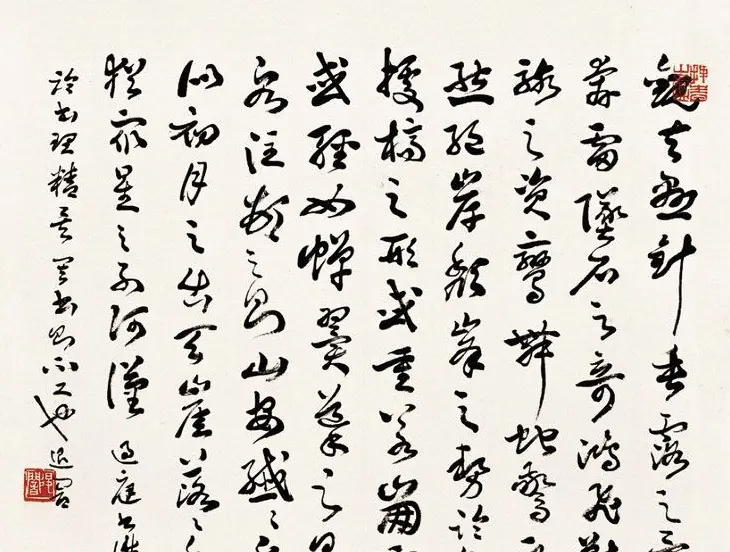 觀夫懸針垂露之
奔雷墜石之奇鴻飛獸
駭之資鸞舞蛇驚
態絕岸頹峯之勢臨
據槁之形或重若崩
或輕如蟬翼導之則
泉注頓之則山安纖〻
似初月之出天崖落〻
猶衆星之列河漢 過庭書譜
論書理精 書則不工也 退密